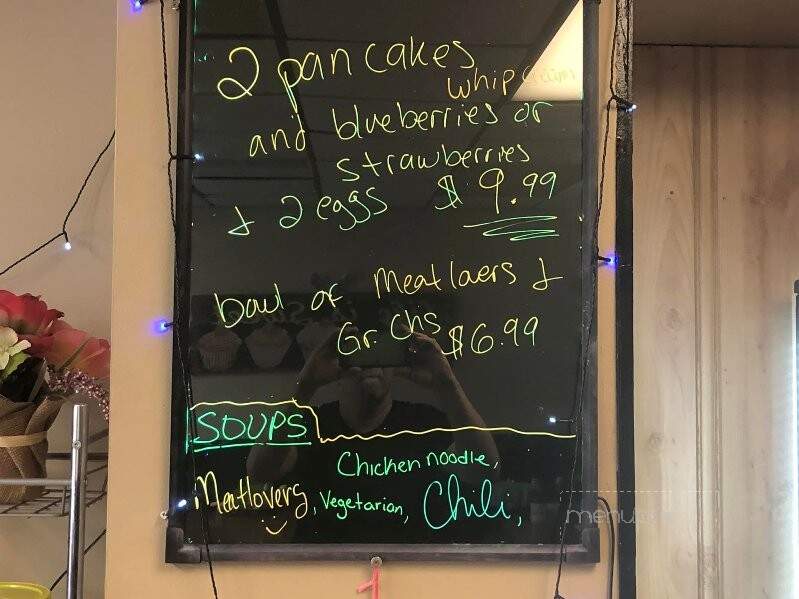 2 pancakes
whip cream
and blueberries or
strawberries
& 2 eggs $ 9.99
bowl of Meatlaers &
Gr. Chs $6.99
SOUPS
Chicken noodle,
Meatlovers, Vegetarian, Chili,
menu